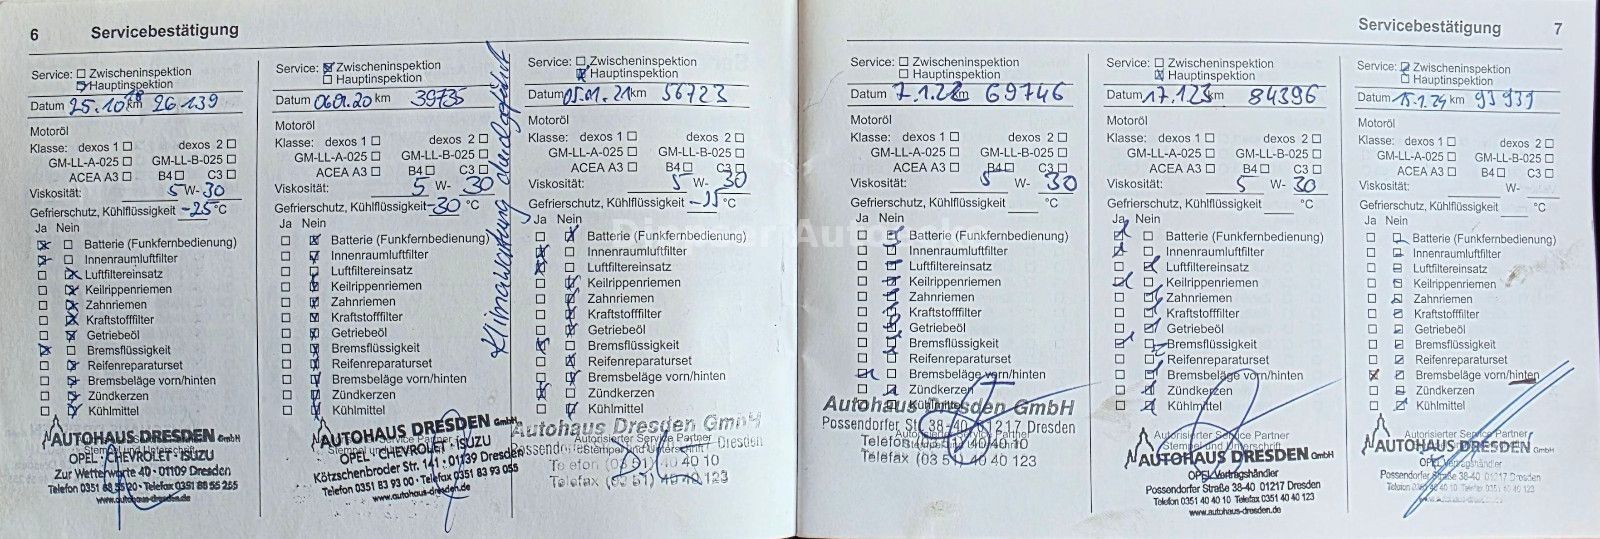 6 Servicebestätigung
Service: Zwischeninspektion
Hauptinspektion
Datum 25.10.18 km 26 139
Motoröl
Klasse: dexos 1 dexos 2
GM-LL-A-025 GM-LL-B-025
ACEA A3 B4 C3
Viskosität: 5 W- 30
Gefrierschutz, Kühlflüssigkeit -25 °C
Ja Nein
Batterie (Funkfernbedienung)
Innenraumluftfilter
Luftfiltereinsatz
Keilrippenriemen
Zahnriemen
Kraftstofffilter
Getriebeöl
Bremsflüssigkeit
Reifenreparaturset
Bremsbeläge vorn/hinten
Zündkerzen
Kühlmittel
AUTOHAUS DRESDEN GmbH
Stempel und Unterschrift
OPEL · CHEVROLET · ISUZU
Zur Wetterwarte 40 · 01109 Dresden
www.autohaus-dresden.de
Service: Zwischeninspektion
Hauptinspektion
Datum 06.01.20 km 39735
Motoröl
Klasse: dexos 1 dexos 2
GM-LL-A-025 GM-LL-B-025
ACEA A3 B4 C3
Viskosität: 5 W- 30
Gefrierschutz, Kühlflüssigkeit -30 °C
Ja Nein
Batterie (Funkfernbedienung)
Innenraumluftfilter
Luftfiltereinsatz
Keilrippenriemen
Zahnriemen
Kraftstofffilter
Getriebeöl
Bremsflüssigkeit
Reifenreparaturset
Bremsbeläge vorn/hinten
Zündkerzen
Kühlmittel
AUTOHAUS DRESDEN GmbH
Autorisierter Service Partner
Stempel und Unterschrift
OPEL · CHEVROLET · ISUZU
Kötzschenbroder Str. 141 · 01139 Dresden
Telefon 0351 83 93 00 · Telefax 0351 83 93 055
www.autohaus-dresden.de
Klimawartung durchgeführt
Service: Zwischeninspektion
Hauptinspektion
Datum 05.01.21 km 56723
Motoröl
Klasse: dexos 1 dexos 2
GM-LL-A-025 GM-LL-B-025
ACEA A3 B4 C3
Viskosität: 5 W- 30
Gefrierschutz, Kühlflüssigkeit °C
Ja Nein
Batterie (Funkfernbedienung)
Innenraumluftfilter
Luftfiltereinsatz
Keilrippenriemen
Zahnriemen
Kraftstofffilter
Getriebeöl
Bremsflüssigkeit
Reifenreparaturset
Bremsbeläge vorn/hinten
Zündkerzen
Kühlmittel
Autohaus Dresden GmbH
Autorisierter Service Partner
Stempel und Unterschrift
Dresden
Telefon (03 51) 40 40 10
Telefax (03 51) 40 40 123
Servicebestätigung 7
Service: Zwischeninspektion
Hauptinspektion
Datum 7.1.22 km 69746
Motoröl
Klasse: dexos 1 dexos 2
GM-LL-A-025 GM-LL-B-025
ACEA A3 B4 C3
Viskosität: 5 W- 30
Gefrierschutz, Kühlflüssigkeit °C
Ja Nein
Batterie (Funkfernbedienung)
Innenraumluftfilter
Luftfiltereinsatz
Keilrippenriemen
Zahnriemen
Kraftstofffilter
Getriebeöl
Bremsflüssigkeit
Reifenreparaturset
Bremsbeläge vorn/hinten
Zündkerzen
Kühlmittel
Autohaus Dresden GmbH
Possendorfer Str. 38-40 01217 Dresden
Autorisierter Service Partner
Telefon (03 51) 40 40 10
Telefax (03 51) 40 40 123
Service: Zwischeninspektion
Hauptinspektion
Datum 17.1.23 km 84396
Motoröl
Klasse: dexos 1 dexos 2
GM-LL-A-025 GM-LL-B-025
ACEA A3 B4 C3
Viskosität: 5 W- 30
Gefrierschutz, Kühlflüssigkeit °C
Ja Nein
Batterie (Funkfernbedienung)
Innenraumluftfilter
Luftfiltereinsatz
Keilrippenriemen
Zahnriemen
Kraftstofffilter
Getriebeöl
Bremsflüssigkeit
Reifenreparaturset
Bremsbeläge vorn/hinten
Zündkerzen
Kühlmittel
Autorisierter Service Partner
AUTOHAUS DRESDEN GmbH
OPEL Vertragshändler
Possendorfer Straße 38-40 01217 Dresden
Telefon 0351 40 40 10 Telefax 0351 40 40 123
www.autohaus-dresden.de
Service: Zwischeninspektion
Hauptinspektion
Datum 15.1.24 km 93939
Motoröl
Klasse: dexos 1 dexos 2
GM-LL-A-025 GM-LL-B-025
ACEA A3 B4 C3
Viskosität: W-
Gefrierschutz, Kühlflüssigkeit °C
Ja Nein
Batterie (Funkfernbedienung)
Innenraumluftfilter
Luftfiltereinsatz
Keilrippenriemen
Zahnriemen
Kraftstofffilter
Getriebeöl
Bremsflüssigkeit
Reifenreparaturset
Bremsbeläge vorn/hinten
Zündkerzen
Kühlmittel
Autorisierter Service Partner
AUTOHAUS DRESDEN GmbH
OPEL Vertragshändler
Possendorfer Straße 38-40 01217 Dresden